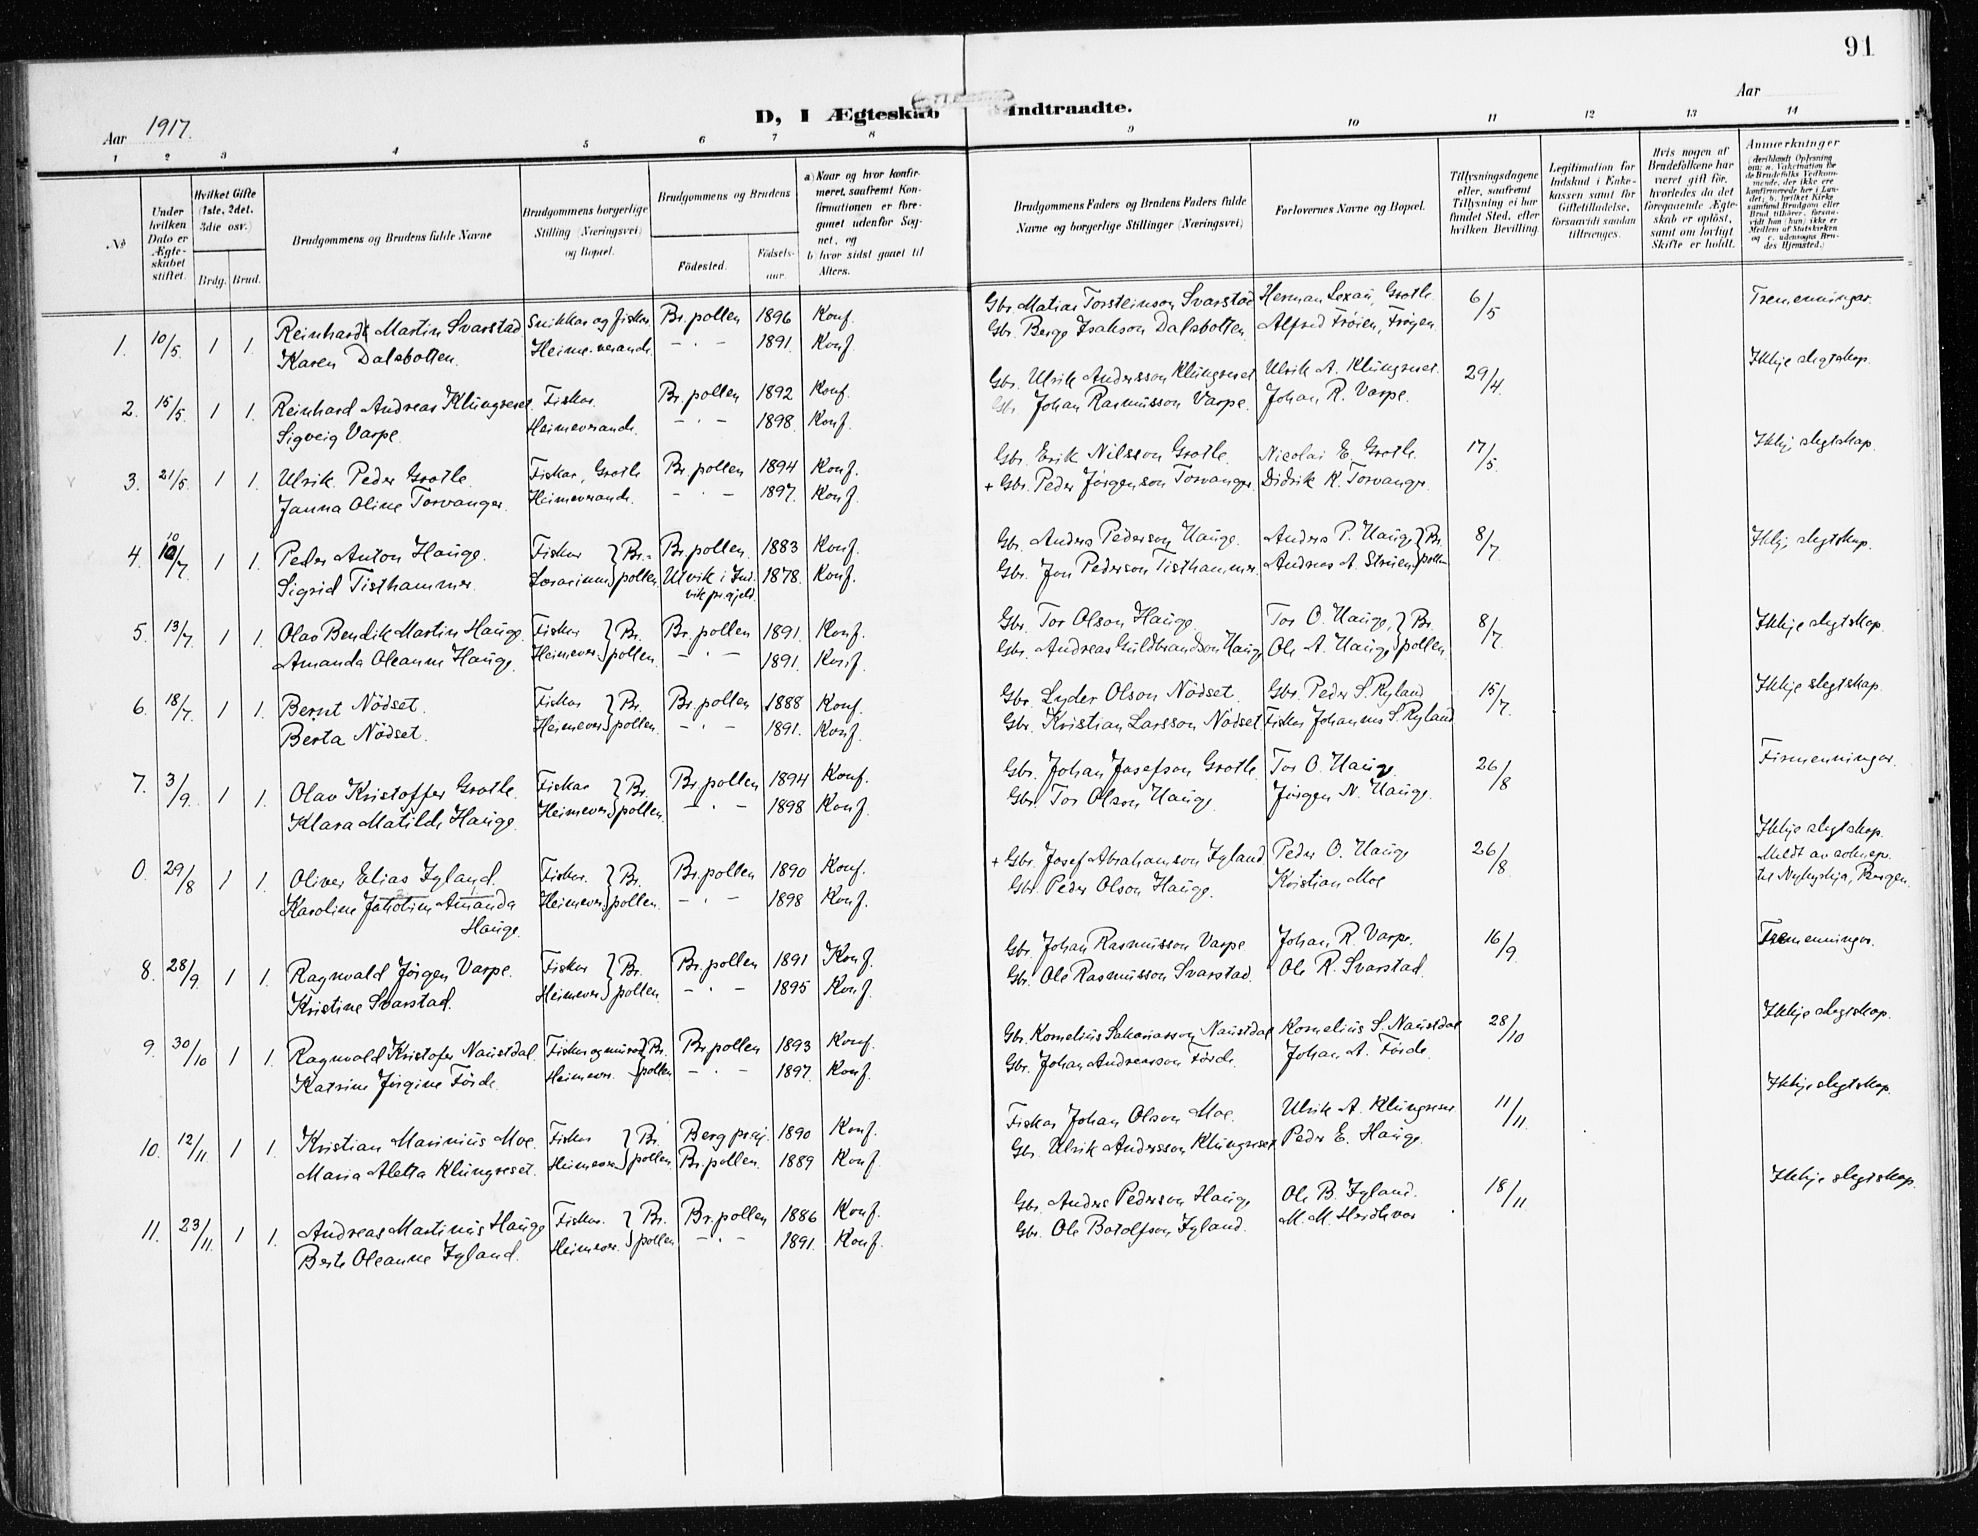 91
D, I Ægteskab Indtraadte.
Aar 1917.
Aar
1 2 3 4 5 6 7 8 9 10 11 12 13 14
No
Under hvilken Dato er Ægteskabet stiftet.
Hvilket Gifte (1ste, 2det, 3die osv.)
Brdg. Brud.
Brudgommens og Brudens fulde Navne
Brudgommens borgerlige Stilling (Næringsvei) og Bopæl.
Brudgommens og Brudens
Födested.
Födselsaar.
a) Naar og hvor konfirmeret, saafremt Konfirmationen er foregaaet udenfor Sognet, og
b) hvor sidst gaaet til Alters.
Brudgommens Faders og Brudens Faders fulde Navne og borgerlige Stillinger (Næringsvei)
Forlovernes Navne og Bopæl.
Tillysningsdagene eller, saafremt Tillysning ei har fundet Sted, efter hvilken Bevilling.
Legitimation for Indskud i Enkekassen samt for Giftetilladelse, forsaavidt saadan tiltrænges.
Hvis nogen af Brudefolkene har været gift för, hvorledes da det foregaaende Ægteskab er oplöst, samt om lovligt Skifte er holdt.
Anmerkninger
(deriblandt Oplysning om: a. Vakcination for de Brudefolks Vedkommende, der ikke ere konfirmerede her i Landet; b. hvilket Kirkesamfund Brudgom eller Brud tilhörer, forsaavidt han (hun) ikke er Medlem af Statskirken og c. udensogns Brudes Hjemsted.)
1. 10/5 1 1. Reinhardt Martin Svarstad Snikkar og fiskar Br.pollen 1896 Konf. Gbr. Matias Torsteinson Svarstad Herman Lexau, Grotle. 6/5 Tremenningar.
Karen Dalsbotten. Heimeverande — " — 1891. Konf. Gbr. Berge Isakson Dalsbotten Alfred Frøien, Frøyen.
2. 15/5 1 1. Reinhard Andreas Klungreset. Fiskar. Br.pollen 1892 Konf. Gbr. Ulrik Andersson Klungreset Ulrik A. Klungreset. 29/4 Ikkje slegtskap.
Sigveig Varpe. Heimeverande. — " — 1898. Konf. Gbr. Johan Rasmusson Varpe. Johan R. Varpe.
3. 21/5 1 1. Ulrik Peder Grotle. Fiskar, Grotle Br.pollen 1894 Konf. Gbr. Erik Nilsson Grotle. Nicolai E. Grotle. 17/5. Ikkje slegtskap.
Janna Oline Torvanger. Heimeverande. — " — 1897. Konf. + Gbr. Peder Jørgenson Torvanger. Didrik K. Torvanger.
4. 10/7 1 1. Peder Anton Hauge. Fiskar } Br.- Br.pollen. 1883 Konf. Gbr. Anders Pederson Hauge. Anders P. Hauge } Br. 8/7 Ikkje slegtskap.
Sigrid Tisthammer. Lærarinne } pollen. Utvik i Indvik pr.gjeld. 1878. Konf. Gbr. Jon Pederson Tisthammer. Andreas A. Strøien } pollen
5. 13/7 1 1. Olav Bendik Martin Hauge. Fiskar } Br. Br.pollen 1891. Konf. Gbr. Tor Olson Hauge. Tor O. Hauge, } Br. 8/7. Ikkje slegtskap.
Amanda Oleanne Hauge. Heimever. } pollen. — " — 1891. Konf. Gbr. Andreas Guldbrandson Hauge Ole A. Hauge } pollen.
6. 18/7 1 1. Bernt Nödset. Fiskar } Br. Br.pollen 1888 Konf. Gbr. Lyder Olson Nödset. Gbr. Peder S. Ryland 15/7. Ikkje slegtskap.
Berta Nödset. Heimever. } pollen. — " — 1891. Konf. Gbr. Kristian Larsson Nödset Fiskar Johannes S. Ryland
7. 3/9. 1 1. Olav Kristoffer Grotle. Fiskar } Br. Br.pollen 1894 Konf. Gbr. Johan Josefson Grotle. Tor O. Hauge 26/8 Firmenningar.
Klara Matilde Hauge. Heimever. } pollen. — " — 1898 Konf. Gbr. Tor Olson Hauge. Jørgen N. Hauge.
0. 29/8 1 1. Oliver Elias Iyland. Fiskar. } Br. Br.pollen 1890 Konf. + Gbr. Josef Abrahamson Iyland Peder O. Hauge 26/8 Ikkje slegtskap.
Karoline Amanda Hauge. Heimever. } pollen. — " — 1898 Konf. Gbr. Peder Olson Hauge. Kristian Moe Meldt av soknepr. til Nykyrkja, Bergen.
8. 28/9. 1 1. Ragnvald Jörgen Varpe. Fiskar } Br. Br.pollen 1891 Konf. Gbr. Johan Rasmusson Varpe Johan R. Varpe. 16/9. Tremenningar.
Kristine Svarstad. Heimever. } pollen. — " — 1895 Konf. Gbr. Ole Rasmusson Svarstad. Ole R. Svarstad.
9. 30/10 1 1. Ragnvald Kristofer Naustdal. Fiskar og murar } Br. Br.pollen 1893 Konf. Gbr. Kornelius Sakariasson Naustdal Kornelius S. Naustdal 28/10 Ikkje slegtskap.
Katrine Jørgine Førde. Heimever. } pollen — " — 1897. Konf. Gbr. Johan Andreasson Førde. Johan A. Førde.
10. 12/11. 1 1. Kristian Marinius Moe. Fiskar } Br. Berg prgj. 1890 Konf. Fiskar Johan Olson Moe. Ulrik A. Klungreset 11/11. Ikkje slegtskap.
Maria Aletta Klungreset. Heimever. } pollen Br.pollen. 1889 Konf. Gbr. Ulrik Andersson Klungreset Peder E. Hauge.
11. 23/11. 1 1. Andreas Martinus Hauge Fiskar. } Br. Br.pollen 1886 Konf. Gbr. Anders Pederson Hauge Ole B. Iyland. 18/11 Ikkje slegtskap.
Berte Oleanne Iyland. Heimever. } pollen — " — 1891. Konf. Gbr. Ole Botolfson Iyland. M. M.